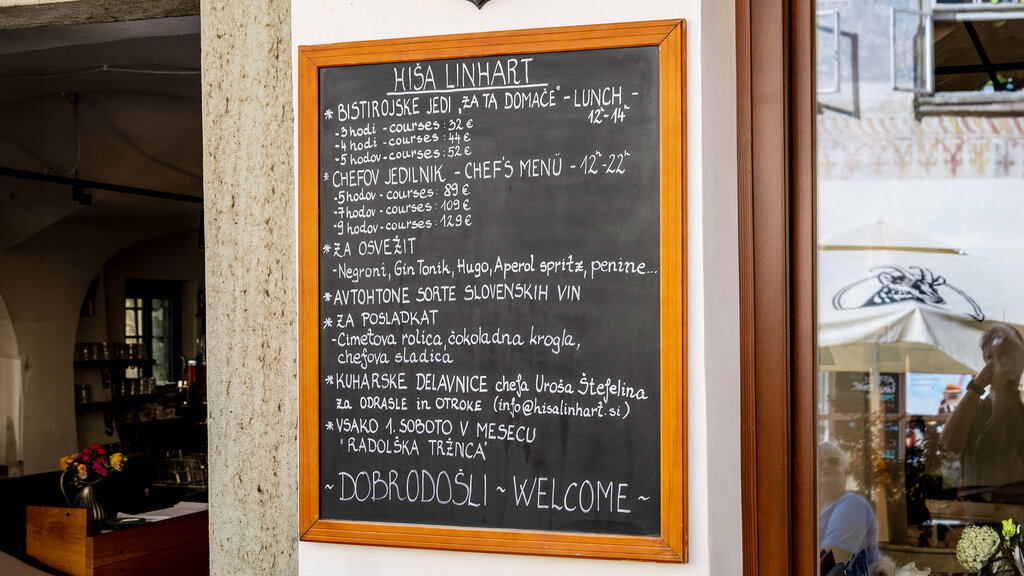 HIŠA LINHART
* BISTIROJSKE JEDI „ZA TA DOMAČE“ - LUNCH -
12ʰ-14ʰ
-3 hodi - courses: 32 €
-4 hodi - courses: 44 €
-5 hodov - courses: 52 €
* CHEFOV JEDILNIK - CHEF'S MENÜ - 12ʰ-22ʰ
-5 hodov - courses: 89 €
-7 hodov - courses: 109 €
-9 hodov - courses: 129 €
* ZA OSVEŽIT
-Negroni, Gin Tonik, Hugo, Aperol spritz, penine...
* AVTOHTONE SORTE SLOVENSKIH VIN
* ZA POSLADKAT
-Cimetova rolica, čokoladna krogla,
chefova sladica
* KUHARSKE DELAVNICE chefa Uroša Štefelina
za ODRASLE in OTROKE (info@hisalinhart.si)
* VSAKO 1. SOBOTO V MESECU
'RADOLŠKA TRŽNCA'
~ DOBRODOŠLI ~ WELCOME ~